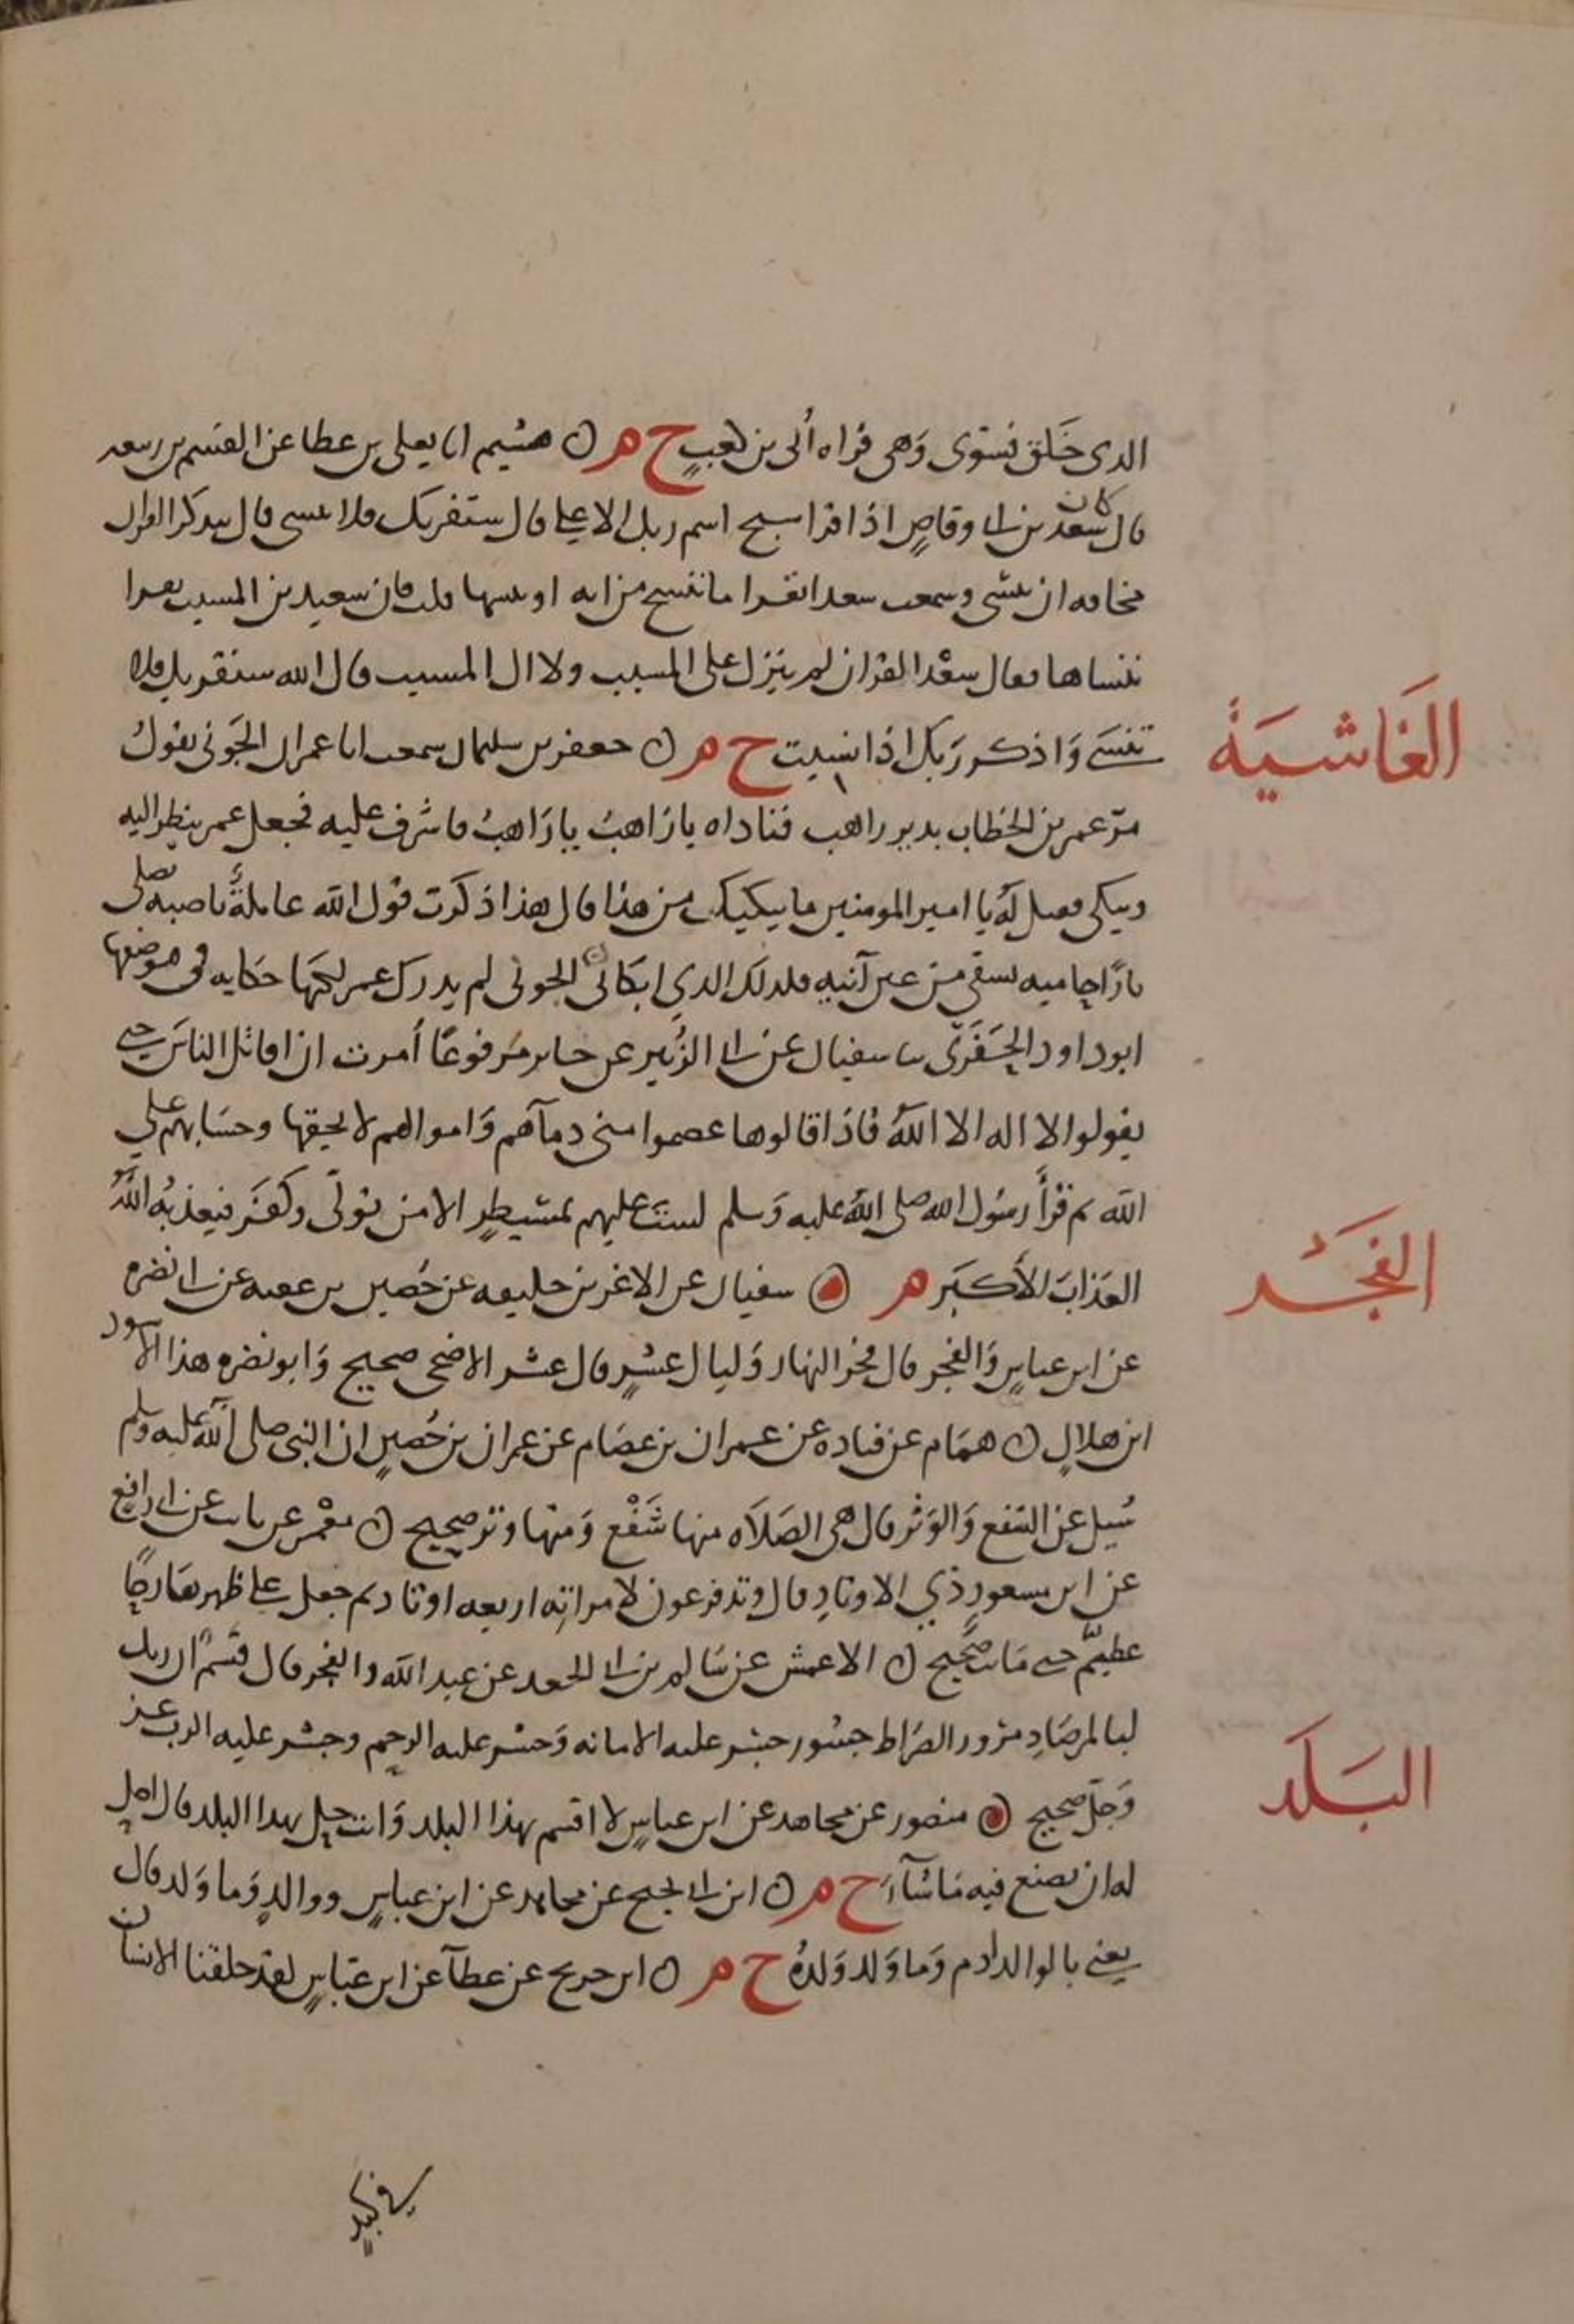 الذى خَلَق فسَوى وَهى قراه أبى بن كعبٍ خ م ن هشيم انا يعلى بن عطا عن القسم بن ربيعه
قال كان سعد بن ابى وقاصٍ اذا قرا سبح اسم ربك الاعلى قال سنقريك فلا تنسى قال يتذكر القران
مخافه ان ينسى وسمعت سعدا يقرا ما ننسخ من ايه او ننسها قلت فان سعيد بن المسيب يقرا
ننساها فقال سعْد القران لم ينزل على المسيب ولا ال المسيب قال الله سنقريك فلا
تنسَى وَاذكر رَبك اذا نسيت خ م ن جعفر بن سليمان سمعت ابا عمران الجَونى يقولُ
مرّ عمر بن الخطاب بدير راهب فناداه يا رَاهبُ يا رَاهبُ فاشرف عليه فجعل عمر ينظر اليه
ويبكى فقيل لهُ يا امير المومنين ما يبكيك من هذا قال هذا ذكَرت قول الله عاملةٌ ناصبه تصلى
نارًا حاميه تسقى من عين آنيهٍ فذلك الذي ابكانى الجونى لم يدرك عمر لكنهَا حكايه فى موضعها
ابو داود الحَفَرى ثنا سفيان عن ابى الزُبير عن جابر مَرفوعًا أمرت ان اقاتل الناسَ حتى
يقولوا لا اله الا اللهُ فاذا قالوها عصموا منى دمآهم وَاموالهم الا بحقها وحسَابهم على
الله ثم قرأ رسُول الله صلى اللهُ عليه وَسلم لستَ عليهم بمسيطرٍ الا من تولى وكفَر فيعذبهُ اللهُ
العَذابَ الأكبَر م ن سفيان عن الاغر بن خليفه عن حُصين بن عقبه عن ابى نضره
عن ابن عباسٍ وَالفجر قال فجر النهار وَليال عشرٍ قال عشر الاضحى صحيح وَابو نضره هذا الاسود
ابن هلالٍ ن همَام عن قتاده عن عمران بن عصَام عن عمران بن حُصينٍ ان النبى صلى الله عليه وسلم
سُيل عن الشفع وَالوَتر قال هى الصَلاَه منها شَفْع وَمنها وتر صحيح ن معْمر عن ثابت عن ابى رافع
عن ابن مسعودٍ ذي الاوتادِ قال وتد فرعون لامراتِه اربعه اوتاد ثم جعل على ظهرها رحًا
عظيمً حتى مَاتت صحيح ن الاعمش عن سَالم بن ابى الجعد عن عبد الله والفجر قال قسَمٌ ان ربك
لبالمرصَادِ من ورا الصرَاط جسُور جسر عليه الامانه وَجسر عليه الرحِم وجسر عليه الرب عز
وَجلّ صحيح ن منصور عن مجاهد عن ابن عباسٍ لا اقسم بهذا البلد وَانت حل بهذا البلد قال احل
له ان يصنع فيه مَا شآءَ خ م ن ابن ابى نجيح عن مجاهد عن ابن عباسٍ ووالدٍ وَما وَلد قال
يعنى بالوالد ادم وَما وَلد وَلدهُ خ م ن ابن جريج عن عطآ عن ابن عبَاسٍ لقد خلقنا الانسان
في كبدٍ
الغَاشيَة
الفجَر
البَلَد